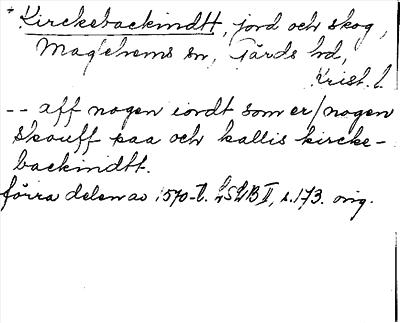 * Kirckebackindtt, jord och skog,
Maglehems sn, Gärds hd,
Krist. l.
-- aff nogen iordt som er/nogen
skouff paa och kallis kircke-
backindtt.
förra delen av 1570-t. LSLB II, s. 173. orig.